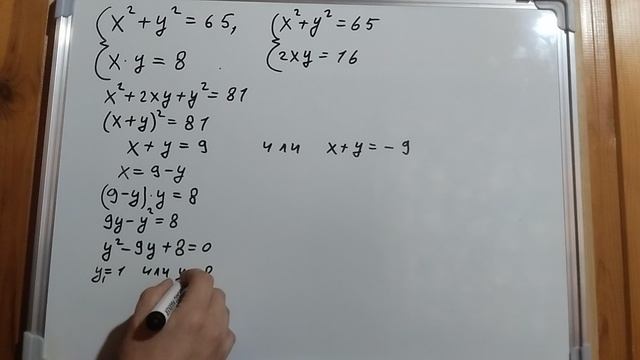 x² + y² = 65,
x · y = 8
x² + y² = 65
2xy = 16
x² + 2xy + y² = 81
(x + y)² = 81
x + y = 9 или x + y = -9
x = 9 - y
(9 - y) · y = 8
9y - y² = 8
y² - 9y + 8 = 0
y₁ = 1 или